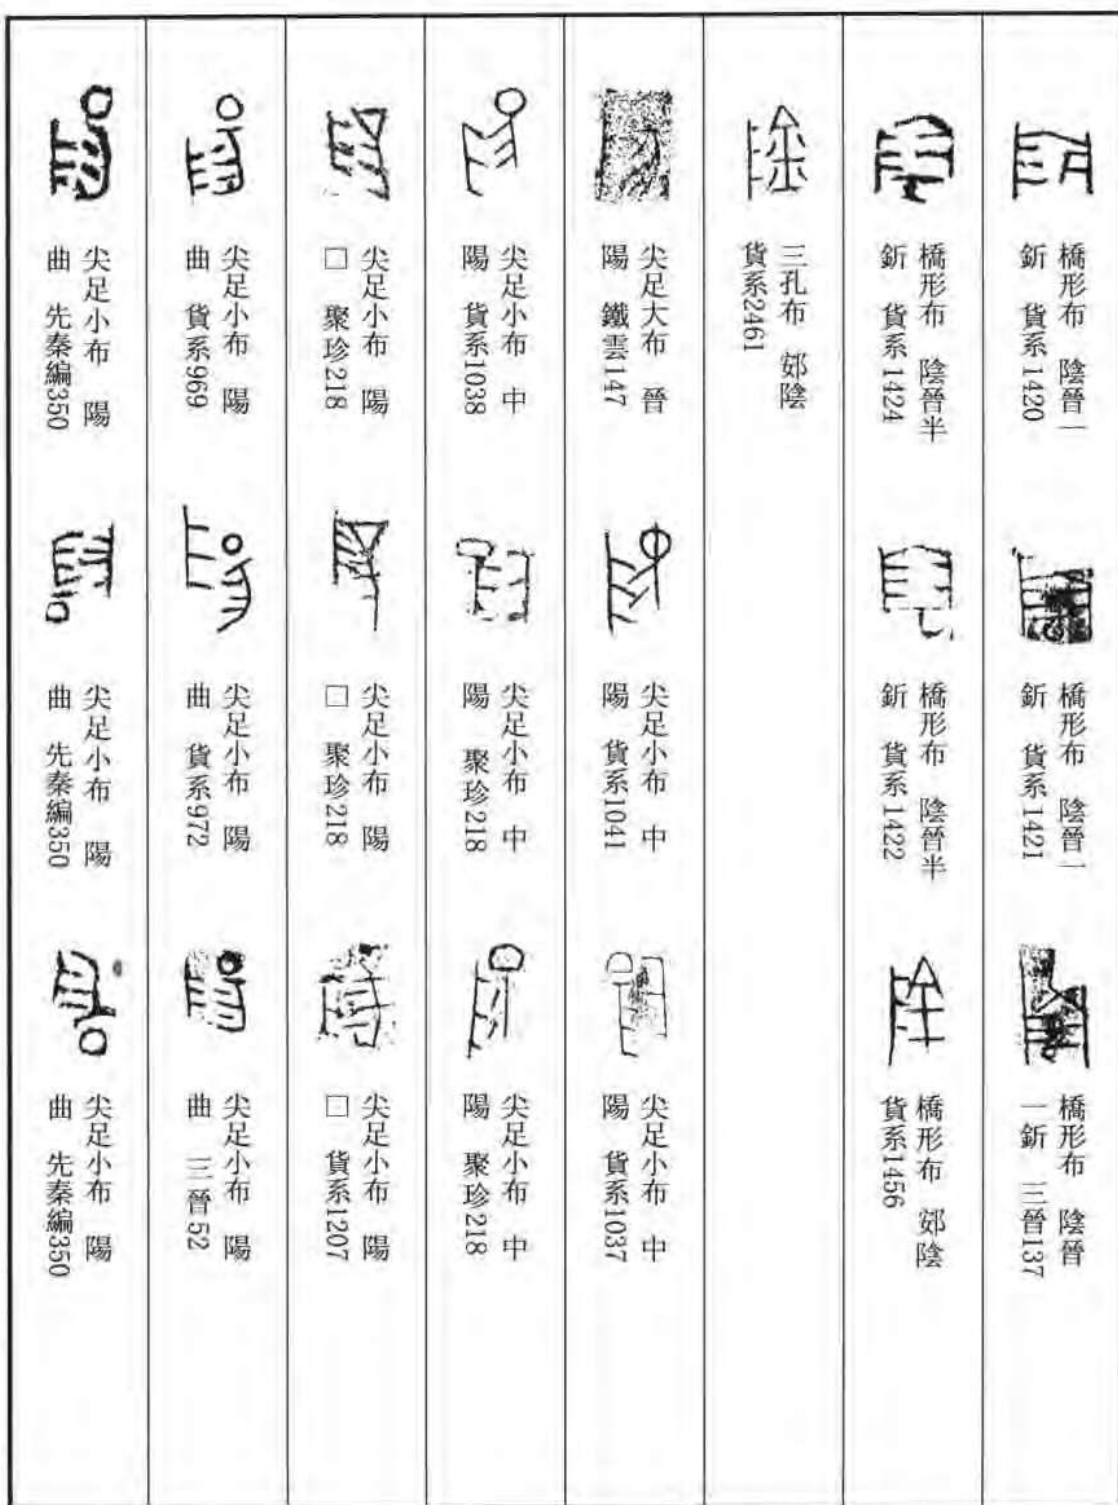 橋形布　陰晉一
釿　貨系1420
橋形布　陰晉一
釿　貨系1421
橋形布　陰晉
一釿　三晉137
橋形布　陰晉半
釿　貨系1424
橋形布　陰晉半
釿　貨系1422
橋形布　郊陰
貨系1456
三孔布　郊陰
貨系2461
尖足大布　晉
陽　鐵雲147
尖足小布　中
陽　貨系1041
尖足小布　中
陽　貨系1037
尖足小布　中
陽　貨系1038
尖足小布　中
陽　聚珍218
尖足小布　中
陽　聚珍218
尖足小布　陽
□　聚珍218
尖足小布　陽
□　聚珍218
尖足小布　陽
□　貨系1207
尖足小布　陽
曲　貨系969
尖足小布　陽
曲　貨系972
尖足小布　陽
曲　三晉52
尖足小布　陽
曲　先秦編350
尖足小布　陽
曲　先秦編350
尖足小布　陽
曲　先秦編350